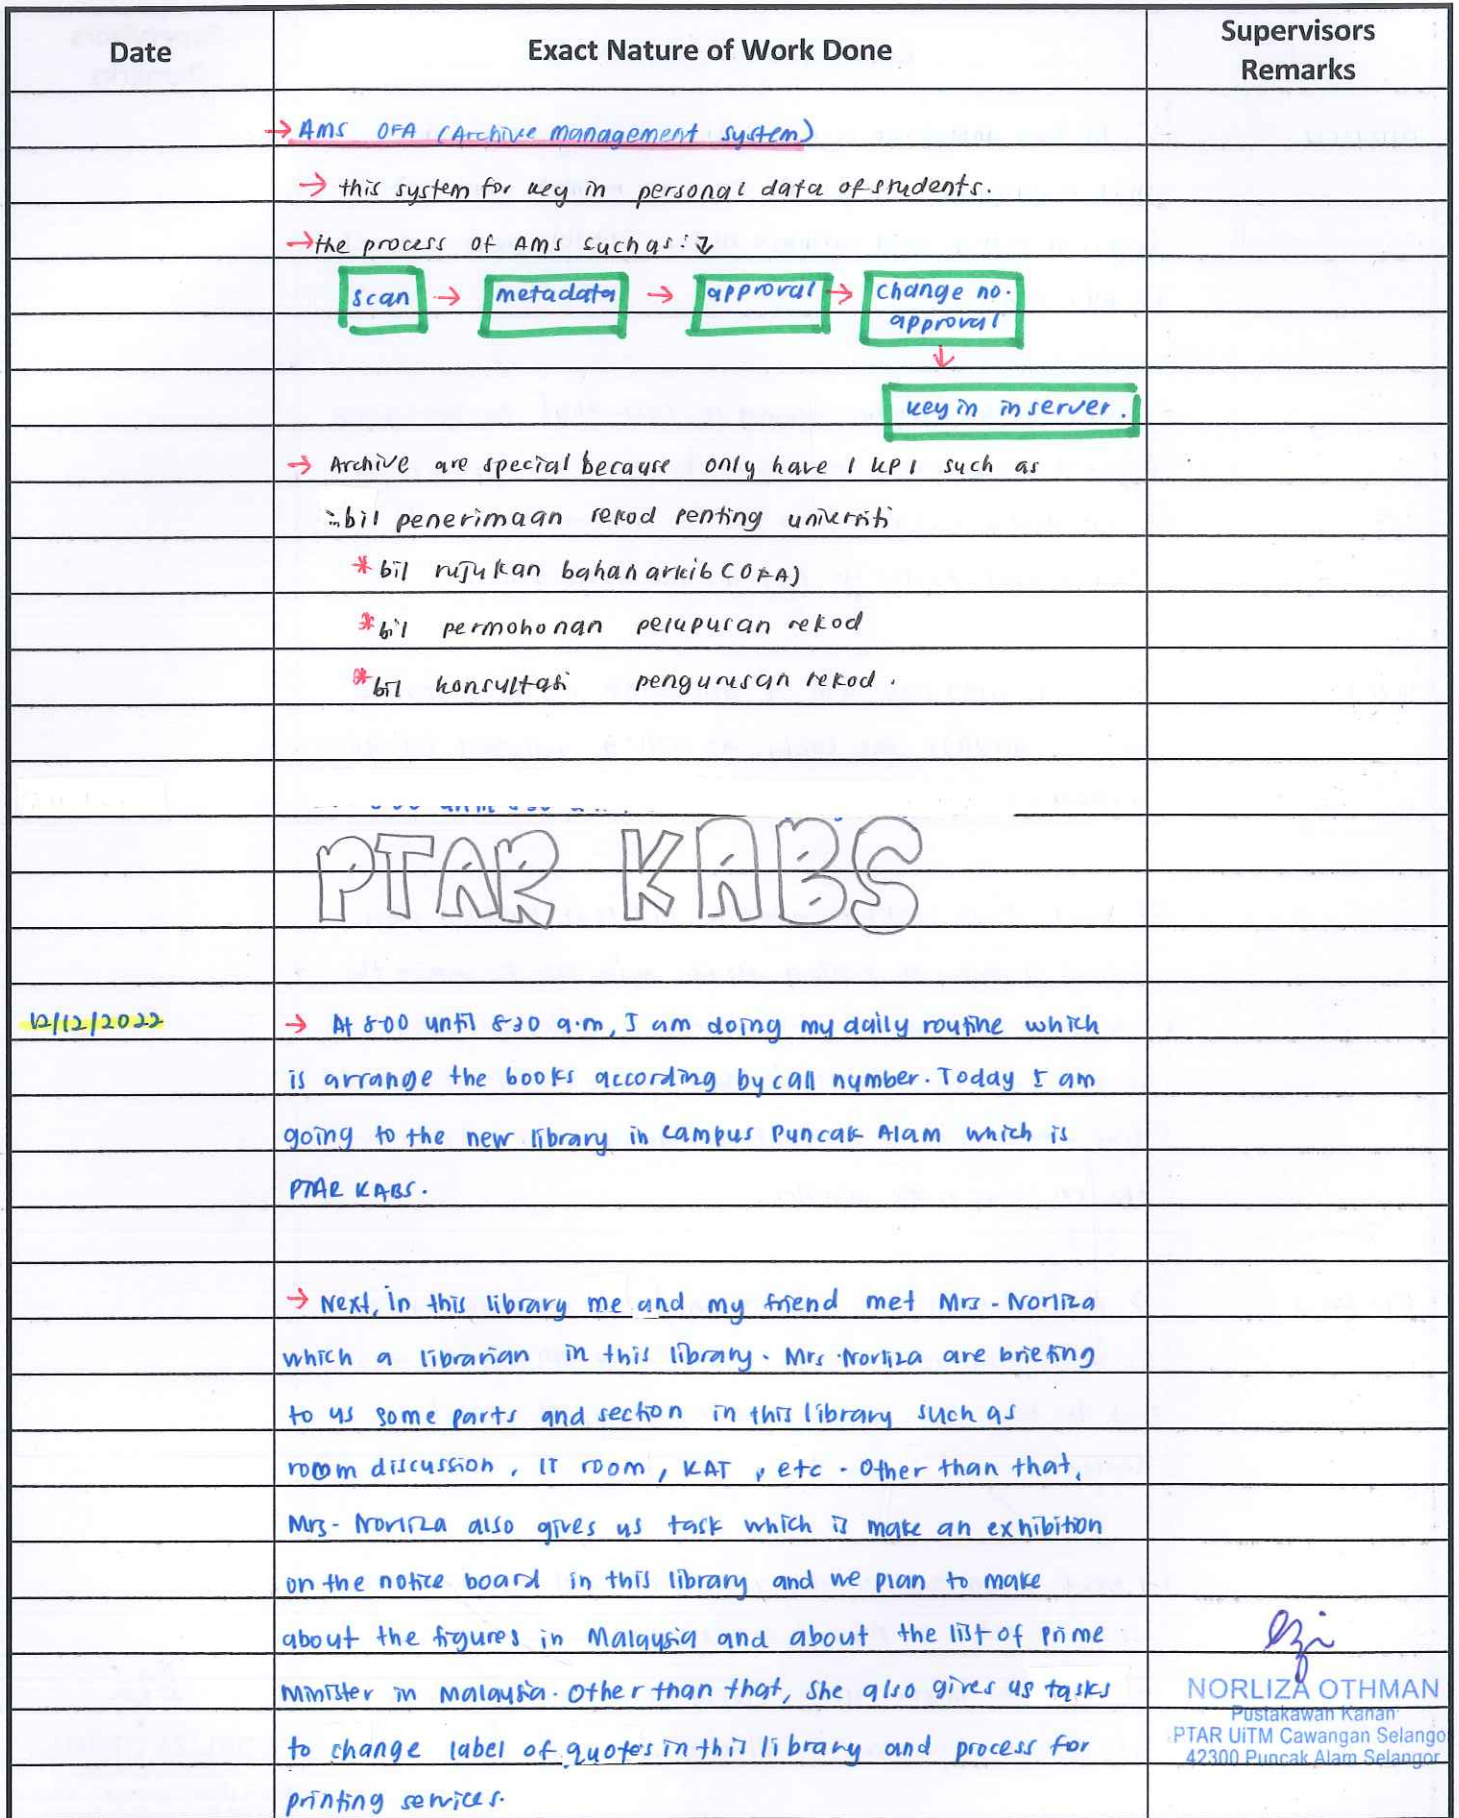 Date
Exact Nature of Work Done
Supervisors
Remarks
→ AMS OFA (Archive management system)
→ this system for key in personal data of students.
→ the process of AMS such as: ↓
scan → metadata → approval → change no.
approval
↓
key in in server.
→ Archive are special because only have 1 KPI such as
:- bil penerimaan rekod penting universiti
* bil rujukan bahan arkib (OFA)
* bil permohonan pelupusan rekod
* bil konsultasi pengurusan rekod.
PTAR KABS
12/12/2022
→ At 8.00 until 8.30 a.m, I am doing my daily routine which
is arrange the books according by call number. Today I am
going to the new library in campus Puncak Alam which is
PTAR KABS.
→ Next, in this library me and my friend met Mrs. Norliza
which a librarian in this library. Mrs. Norliza are briefing
to us some parts and section in this library such as
room discussion, IT room, KAT, etc. Other than that,
Mrs. Norliza also gives us task which is make an exhibition
on the notice board in this library and we plan to make
about the figures in Malaysia and about the list of Prime
Minister in Malaysia. Other than that, she also gives us tasks
to change label of quotes in this library and process for
printing services.
NORLIZA OTHMAN
Pustakawan Kanan
PTAR UiTM Cawangan Selango
42300 Puncak Alam Selangor